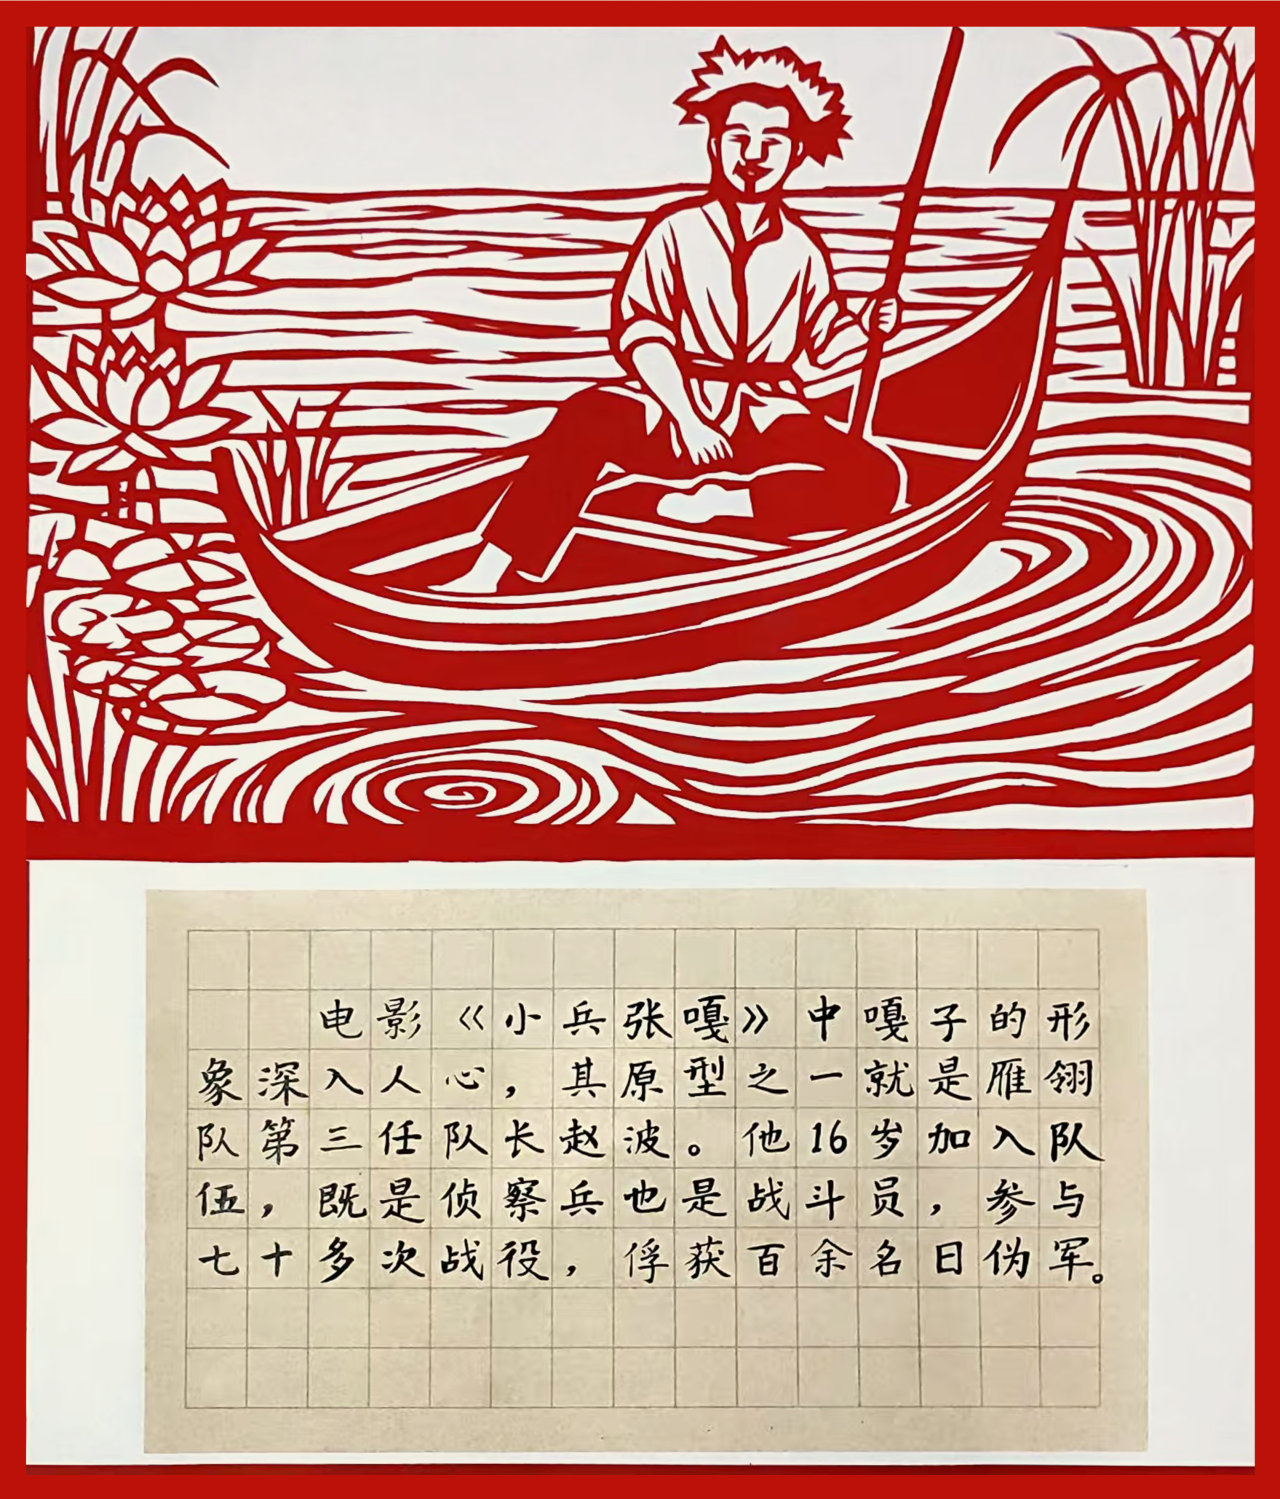 电影《小兵张嘎》中嘎子的形
象深入人心，其原型之一就是雁翎
队第三任队长赵波。他16岁加入队
伍，既是侦察兵也是战斗员，参与
七十多次战役，俘获百余名日伪军。